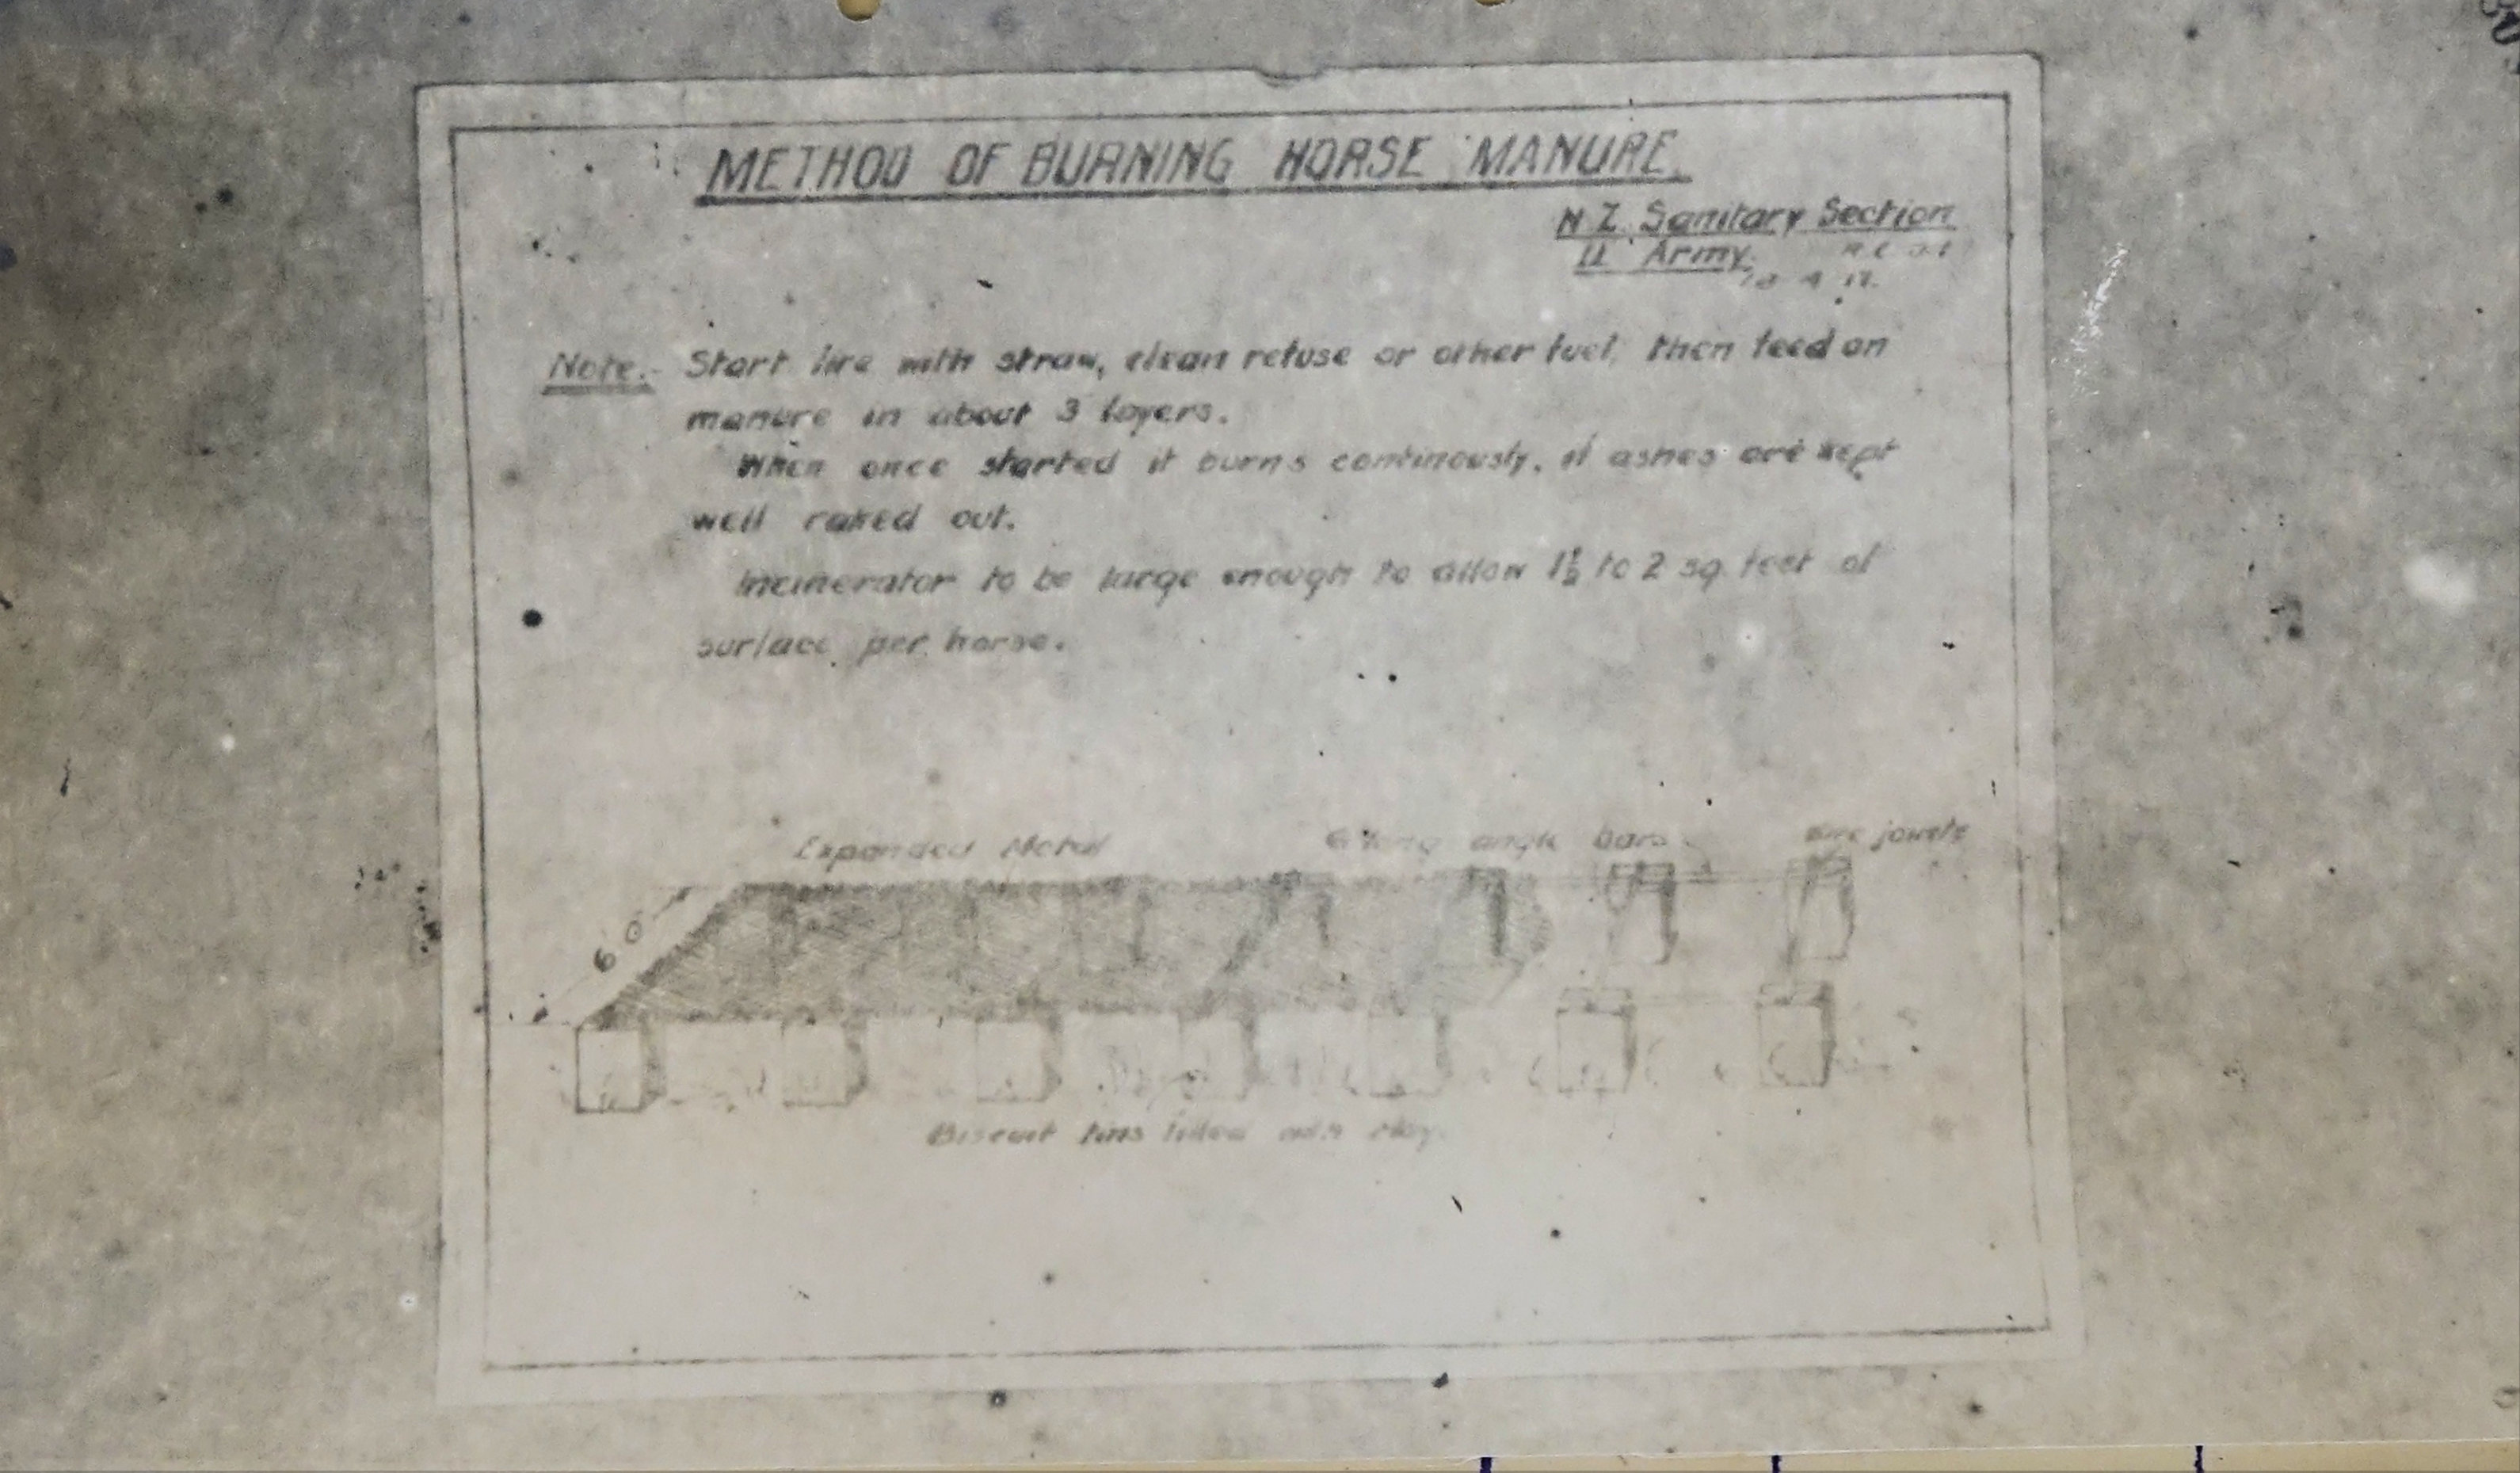 METHOD OF BURNING HORSE MANURE.
N.Z. Sanitary Section
II Army.
Note:- Start fire with straw, clean refuse or other fuel, then feed on
manure in about 3 layers.
When once started it burns continously, if ashes are kept
well raked out.
Incinerator to be large enough to allow 1½ to 2 sq. feet of
surface per horse.
Expanded Metal
angle bars
6' 0"
Biscuit tins filled with clay.